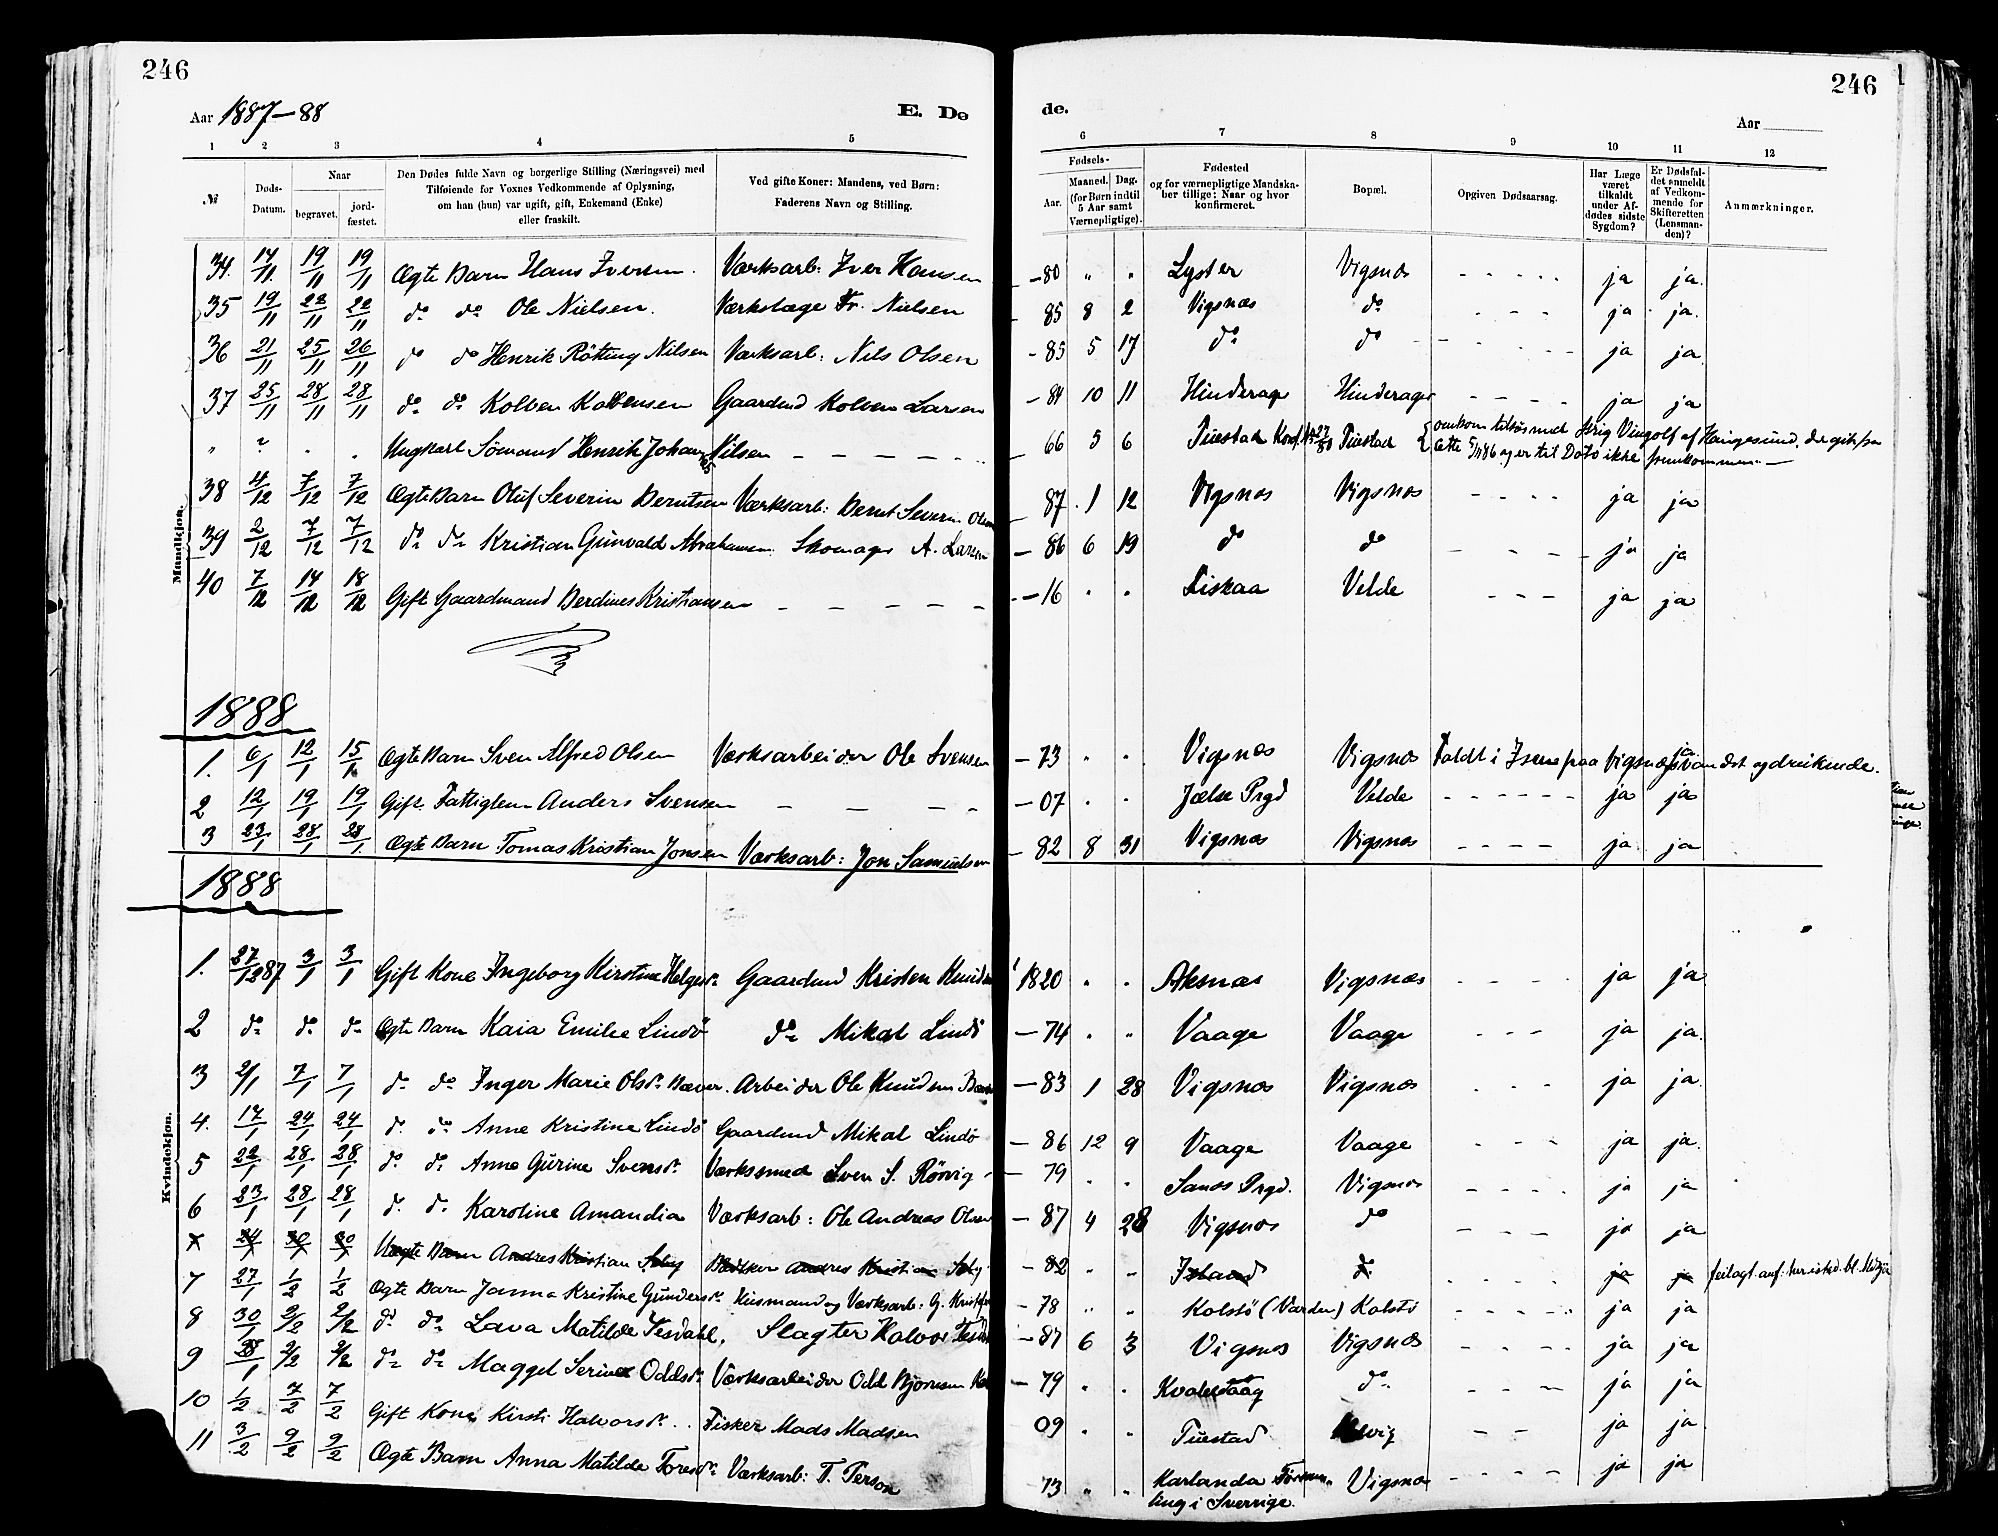 246
246
Aar 1887-88
E. Dø
de.
Aar
1 2 3 4 5
6 7 8 9 10 11 12
№ Døds-Datum. Naar begravet. jord-fæstet. Den Dødes fulde Navn og borgerlige Stilling (Næringsvei) med Tilføiende for Voxnes Vedkommende af Oplysning, om han (hun) var ugift, gift, Enkemand (Enke) eller fraskilt. Ved gifte Koner: Mandens, ved Børn: Faderens Navn og Stilling.
Fødsels- Aar. Maaned. Dag. (for Børn indtil 5 Aar samt Værnepligtige). Fødested og for værnepligtige Mandskaber tillige: Naar og hvor konfirmeret. Bopæl. Opgiven Dødsaarsag. Har Læge været tilkaldt under Afdødes sidste Sygdom? Er Dødsfaldet anmeldt af Vedkommende for Skifteretten (Lensmanden)? Anmærkninger.
Mandkjøn.
34. 14/11. 19/11 19/11 Ægte Barn Hans Iversen. Værksarb: Iver Hansen -80 " " Lyster Vigsnæs ja ja.
35 19/11 22/11 22/11 do do Ole Nielsen. Værkslæge Fr. Nielsen 85 8 2 Vigsnæs do ja ja.
36 21/11 25/11 26/11 do do Henrik Rötting Nilsen Værksarb: Nils Olsen -85 5 17 do do ja ja
37 25/11 28/11 28/11 do do Kolben Kolbensen Gaardmd Kolben Larsen -84 10 11 Hinderager Hinderager ja ja
" ? Ungkarl Sömand Henrik Johan Nilsen 66 5 6 Tuestad Konf. Tuestad omkom tilsös med Brig Vingolf af Haugesund, der gik fra Cette 5/11 86 og er til Dato ikke fremkommen.
38 4/12 7/12 7/12 Ægte Barn Oluf Severin Berntsen Værksarb: Bernt Severin Olsen 87 1 12 Vigsnæs Vigsnæs ja ja
39 2/12 7/12 7/12 do do Kristian Gunvald Abrahamsen Skomager A. Larsen -86 6 19 do do ja ja
40 7/12 14/12 18/12 Gift Gaardmand Berdines Kristiansen -16 " " Fiskaa Velde ja ja
1888
1. 6/1 12/1 15/1 Ægte Barn Sven Alfred Olsen Værksarbeider Ole Svensen -73 " " Vigsnæs Vigsnæs Faldt i Isen paa Vigsnæsvandet og druknede. ja
2 12/1 19/1 19/1 Gift Fattiglem Anders Svensen -07 " " Jælse Prgd Velde ja ja
3 23/1 28/1 28/1. Ægte Barn Tomas Kristian Jonsen Værksarb: Jon Samuelsen 82 8 31 Vigsnæs Vigsnæs ja ja
1888
Kvindekjøn.
1. 27/12 87 3/1 3/1 Gift Kone Ingeborg Kirstine Helgesdr. Gaardmd Kristen Knudsen 1820 " " Aksnæs Vigsnæs ja ja
2 do do do Ægte Barn Kaia Emilie Lindö do Mikal Lindö -74 " " Vaage Vaage ja ja.
3 2/1 7/1 7/1 do do Inger Marie Olsdr. Bæver. Arbeider Ole Knudsen -83 1 28 Vigsnæs Vigsnæs ja ja.
4. 17/1 24/1 24/1 do do Anne Kristine Lindö Gaardmd Mikal Lindö -86 12 9 Vaage Vaage ja ja.
5 22/1 28/1 28/1 do do Anne Gurine Svensdr. Værkssmed Sven S. Rörvig -79 " " Sanös Prgd. Vigsnæs ja ja
6 23/1 28/1 28/1 do do Karoline Amandia Værksarb: Ole Andreas Olsen -87 4 28 Vigsnæs do ja ja
x 24/1 30/1 30/1 Uægte Barn Andres Kristian Bødker Andres Kristian -82 " " Island do ja ja feilagt anf. her
7 27/1 1/2 1/2 Ægte Barn Janna Kristine Gundersdr. Husmand og Værksarb: G. -78 " " Kolstö (Varden) Kolstö ja ja
8 30/1 2/2 2/2 do do Lava Matilde Tesdahl, Slagter Halvor -87 6 3 Vigsnæs Vigsnæs ja ja
9 28/1 2/2 2/2 do do Maggel Serine Oddsdr. Værksarbeider Odd Bjørnsen -79 " " Kvalevaag do ja ja
10 1/2 7/2 7/2 Gift Kone Kirsti Halvorsdr. Fisker Mads Madsen 09 " " Tuestad ja ja
11 3/2 9/2 9/2 Ægte Barn Anna Matilde Toresdr. Værksarb: T. Terson 73 " " Karlanda i Sverrige. Vigsnæs ja ja